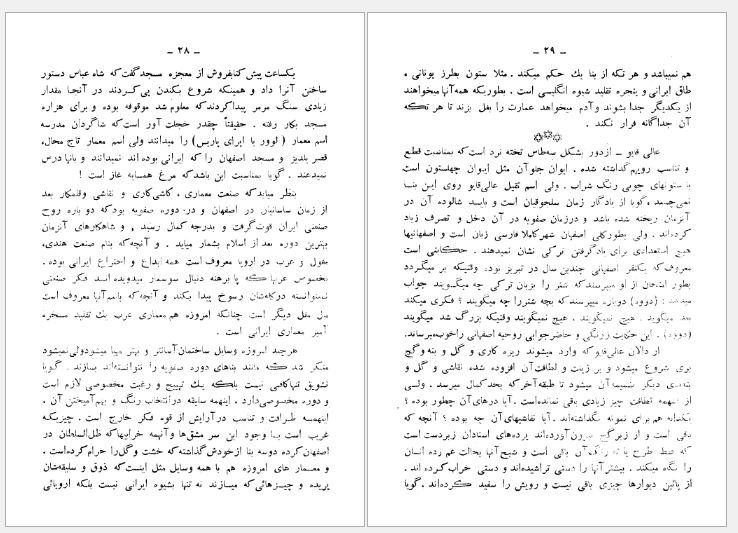 ـ ۲۸ ـ
یکساعت پیش کتابفروش از معجزه مسجد گفت که شاه عباس دستور
ساختن آنرا داد و همینکه شروع بکندن پی کردند در آنجا مقدار
زیادی سنگ مرمر پیدا کردند که معلوم شد موقوفه بوده و برای هزاره
مسجد بکار رفته . حقیقتاً چقدر خجلت آور است که شاگردان مدرسه
اسم معمار ( لوور یا اپرای پاریس ) را میدانند ولی اسم معمار تاج محال،
قصر بلدیز و مسجد اصفهان را که ایرانی بوده اند نمیدانند و بآنها درس
نمیدهند . گویا بمناسبت این باشد که مرغ همسایه غاز است !
بنظر میاید که صنعت معماری، کاشی‌کاری و نقاشی وقلمکار بعد
از زمان ساسانیان در اصفهان و در دوره صفویه بود که دو باره روح
صنعتی ایران قوت گرفت و بدرجه کمال رسید , و شاهکارهای آنزمان
بهترین دوره بعد از اسلام بشمار میاید . و آنچه که بنام صنعت هندی،
مغول و عرب در اروپا معروف است همه ابداع و اختراع ایرانی بوده .
مخصوص عرب که پا برهنه دنبال سوسمار میدویده است فکر صنعتی
نمیتوانسته در کله‌شان رسوخ پیدا بکند و آنچه که باسم آنها معروف است
مال ملل دیگر است چنانکه امروزه هم معماری عرب یک تقلید مسخره
آمیز معماری ایرانی است .
هرچند امروزه وسایل ساختمان آسانتر و بهتر مهیا میشود ولی نمیشود
منکر شد که مانند بناهای دوره صفویه را نتوانسته‌اند بسازند . گویا
تشویق تنها کافی نیست بلکه یک تهییج و رغبت مخصوصی لازم است
و دوره مخصوصی دارد . اینهمه سلیقه در انتخاب رنگ و بهم آمیختن آن ،
اینهمه ظرافت و تناسب در آرایش از قوه فکر خارج است . چیزیکه
غریب است با وجود این سر مشق‌ها و آنهمه خرابیها که ظل‌السلطان در
اصفهان کرده دوسه بنا از خودش گذاشته که خشت و گل را حرام کرده است .
و معمار های امروزه هم با همه وسایل مثل اینست که ذوق و سلیقه‌شان
پریده و چیزهائی که میسازند نه تنها بشیوه ایرانی نیست بلکه اروپائی
ـ ۲۹ ـ
هم نمیباشد و هر تکه از بنا یک حکم میکند . مثلا ستون بطرز یونانی ،
طاق ایرانی و پنجره تقلید شیوه انگلیسی است . بطوریکه همه آنها میخواهند
از یکدیگر جدا بشوند و آدم میخواهد عمارت را بغل بزند تا هر تکه
آن جداگانه فرار نکند .
عالی قاپو ـ از دور بشکل سه‌طاس تخته نرد است که بمناسبت قطع
و تناسب رویهم گذاشته شده . ایوان جلو آن مثل ایوان چهلستون است
با ستونهای چوبی رنگ شراب . ولی اسم ثقیل عالی‌قاپو روی این بنا
نمی‌چسبد، گویا از یادگار زمان سلجوقیان است و باید شالوده آن در
آنزمان ریخته شده باشد و درزمان صفویه در آن دخل و تصرف زیاد
کرده‌اند . ولی بطور کلی اصفهان شهر کاملا فارسی زبان است و اصفهانیها
هیچ استعدادی برای یاد گرفتن ترکی نشان نمیدهند . حکایتی است
معروف که یکنفر اصفهانی چندین سال در تبریز بود، وقتیکه بر میگردد
بطور امتحان از او میپرسند که شتر را بزبان ترکی چه میگویند جواب
میدهد : (دوه) دوباره میپرسند که بچه شتر را چه میگویند ؟ فکری میکند
بعد میگوید . هیچ نمیگویند . هیچ نمیگویند وقتیکه بزرگ شد میگویند
(دوه) . این حکایت زرنگی و حاضرجوابی روحیه اصفهانی را خوب میرساند.
از دالان عالی‌قاپو که وارد میشوند ریزه کاری و گل و بته و گچ
بری شروع میشود و بر زینت و لطافت آن افزوده شده نقاشی و گل و
بته‌های دیگر ضمیمه آن میشود تا طبقه آخر که بحد کمال میرسد . ولی
از اینهمه لطافت چیز زیادی باقی نمانده‌است . آیا درهای آن چطور بوده ؟
یکدانه هم برای نمونه نگذاشته‌اند . آیا نقاشیهای آن چه بوده ؟ آنچه که
باقی است و از زیر گچ بیرون آورده‌اند پرده‌های استادان زبردست است
که فقط طرح یا ته رنگ آن باقی است و شبح آنها بحالت غم زده انسان
را نگاه میکند . بیشتر آنها را دستی تراشیده‌اند و دستی خراب کرده اند .
از پائین دیوارها چیزی باقی نیست و رویش را سفید کرده‌اند . گویا